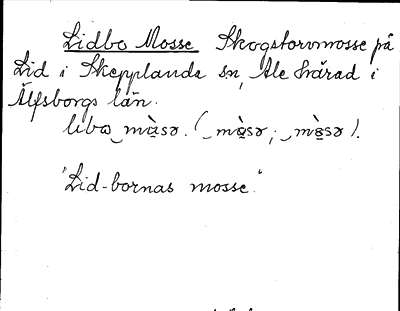 Lidbo Mosse Skogstorvmosse på
Lid i Skepplanda sn, Ale härad i
Älfsborgs län.
libo‿mὰ̱sə. (‿mὰ̱sə; ‿mὲ̱sə).
"Lid-bornas mosse."